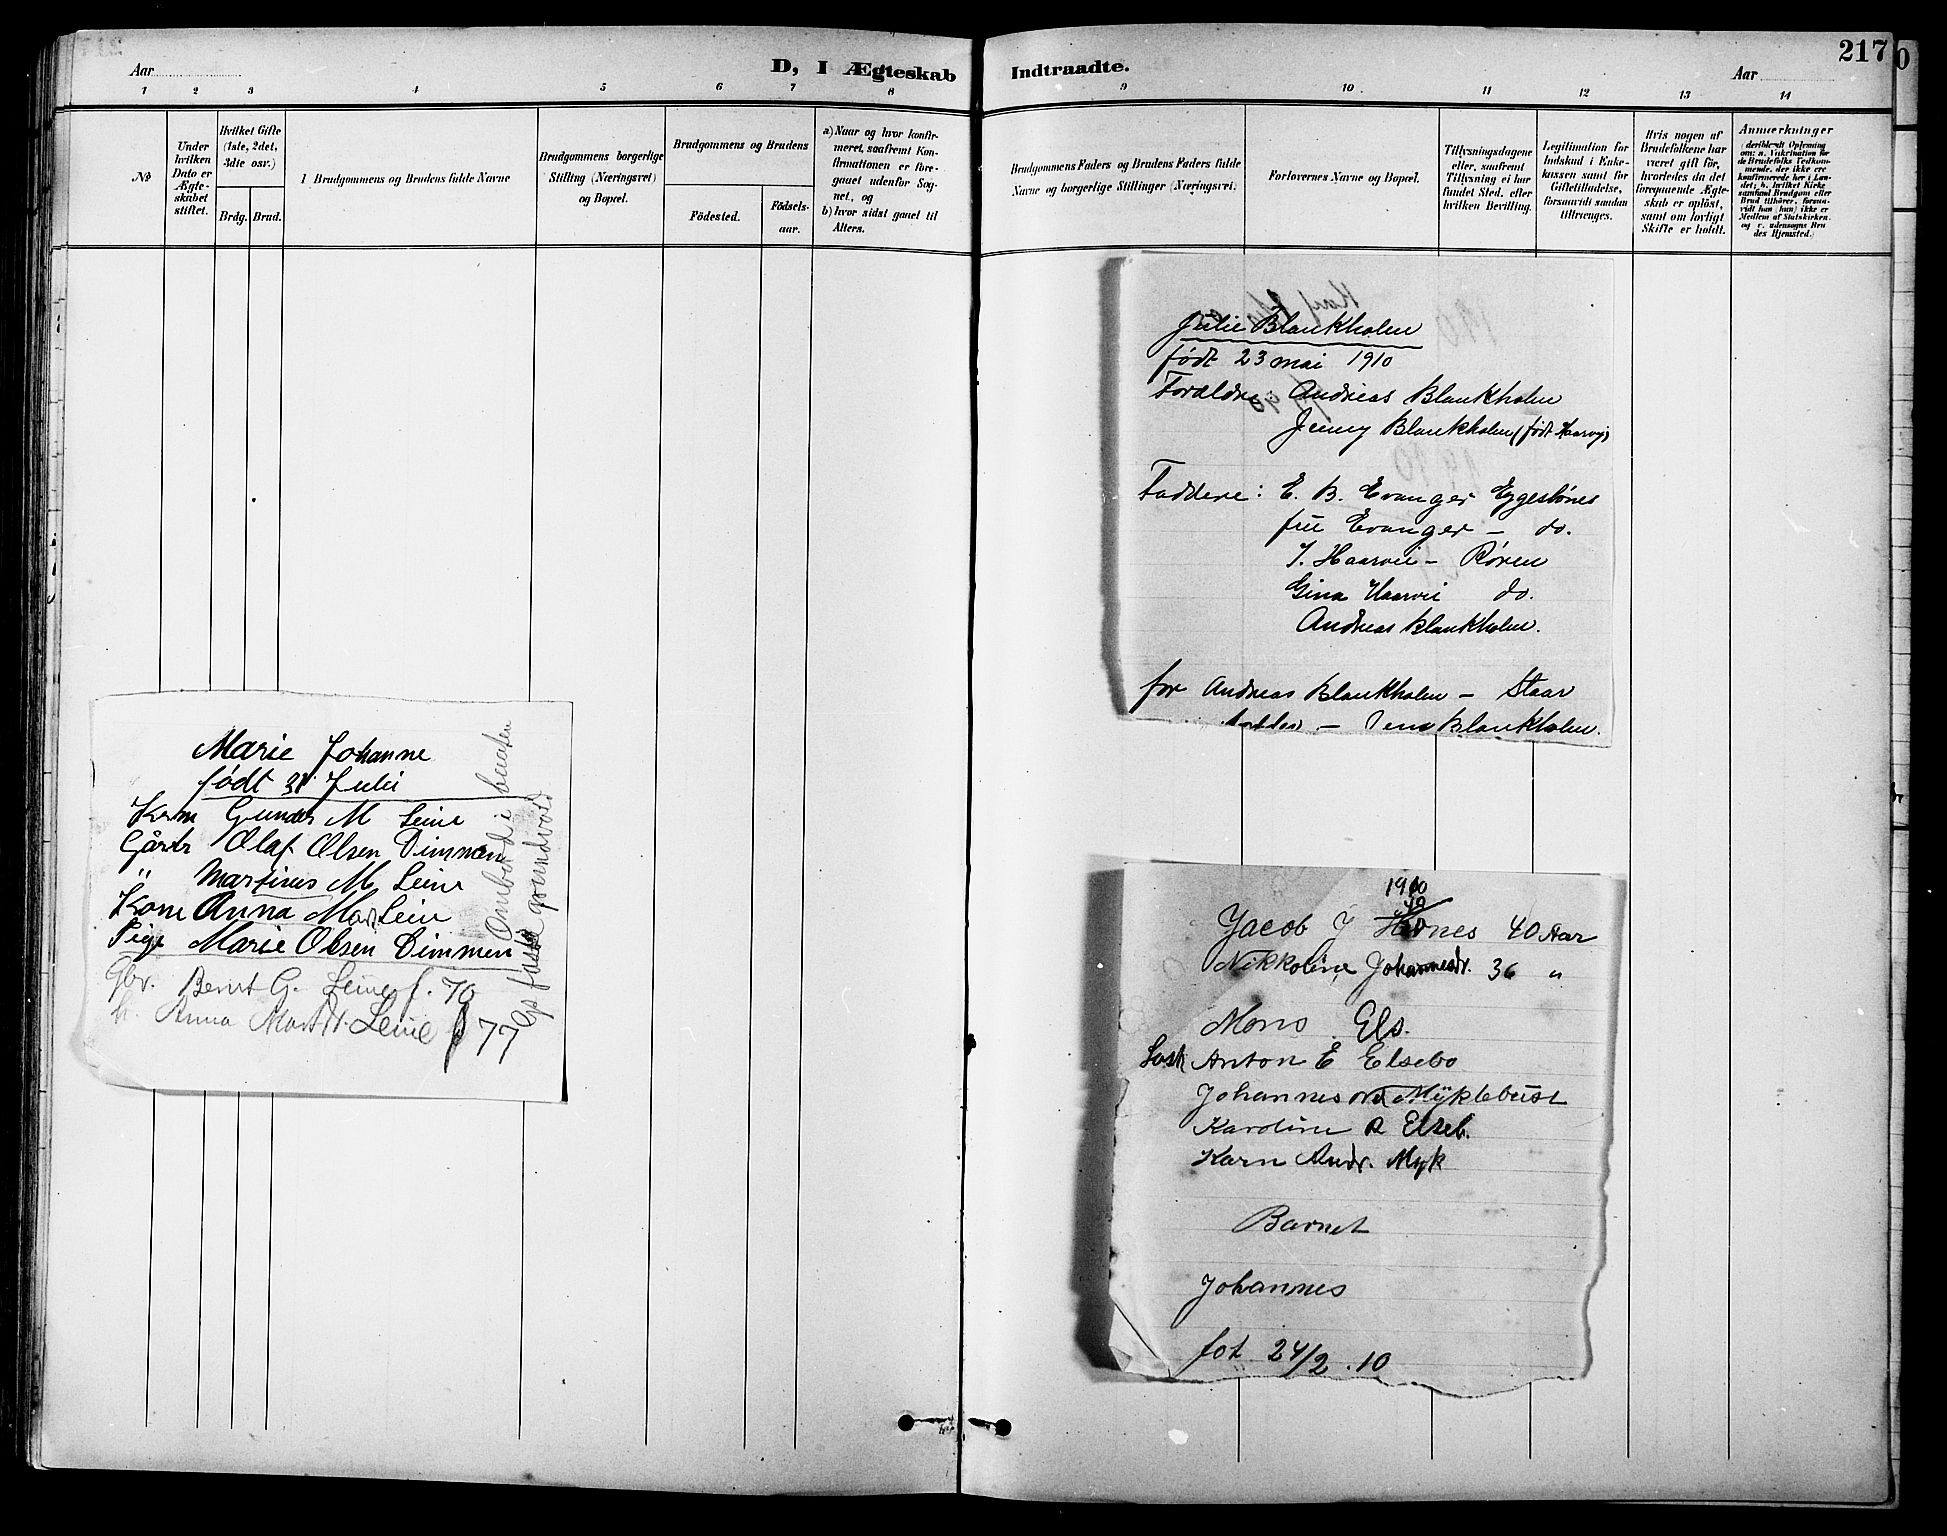 217
Aar
D, I Ægteskab Indtraadte.
Aar
1 2 3 4 5 6 7 8 9 10 11 12 13 14
No
Under hvilken Dato er Ægteskabet stiftet.
Hvilket Gifte (1ste, 2det, 3die osv.)
Brdg. Brud.
1 Brudgommens og Brudens fulde Navne
Brudgommens borgerlige Stilling (Næringsvei) og Bopæl.
Brudgommens og Brudens
Födested.
Födsels-aar.
a) Naar og hvor konfirmeret, saafremt Konfirmationen er foregaaet udenfor Sognet, og
b) hvor sidst gaaet til Alters.
Brudgommens Faders og Brudens Faders fulde Navne og borgerlige Stillinger (Næringsvei)
Forlovernes Navne og Bopæl.
Tillysningsdagene eller, saafremt Tillysning ei har fundet Sted, efter hvilken Bevilling.
Legitimation for Indskud i Enkekassen samt for Giftetilladelse, forsaavidt saadan tiltrænges.
Hvis nogen af Brudefolkene har været gift før, hvorledes da det foregaaende Ægteskab er oplöst, samt om lovligt Skifte er holdt.
Anmærkninger
Marie Johanne
født 31 Juli
Kom Gunder M Leine
Gårbr Olaf Olsen Dimmen
" Martinus M Leine
Kone Anna Mar. Leine
Pige Marie Olsen Dimmen
Gbr. Bernt G. Leine f. 70
h. Anna Mart. Leine f 77
Julie Blankholm
født 23 mai 1910
Foreldre: Andreas Blankholm
Jenny Blankholm (født Haarvei)
Faddere: E. B. Evanger Eggesbønes
fru Evanger – do.
J. Haarvei – Røren
Gina Haarvei do.
Andreas Blankholm.
for Andreas Blankholm – Staar
– Blankholm.
1910
Jacob J 40 Aar
Nikkoline Johannesdr. 36 "
Mons Els.
Anton E Elsebo
Johannes Myklebust
Karoline R Elseb.
Karn Andr. Myk
Barnet
Johannes
fot 24/2.10